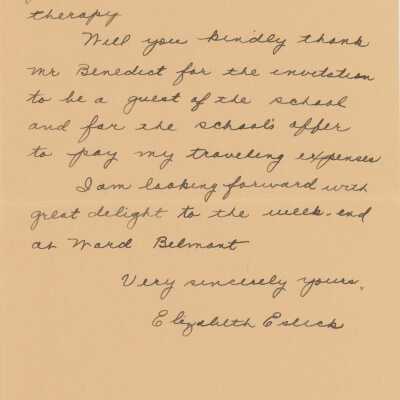 therapy
Will you kindly thank
Mr Benedict for the invitation
to be a guest of the school
and for the school's offer
to pay my traveling expenses
I am looking forward with
great delight to the week-end
at Ward Belmont
Very sincerely yours,
Elizabeth Eslick